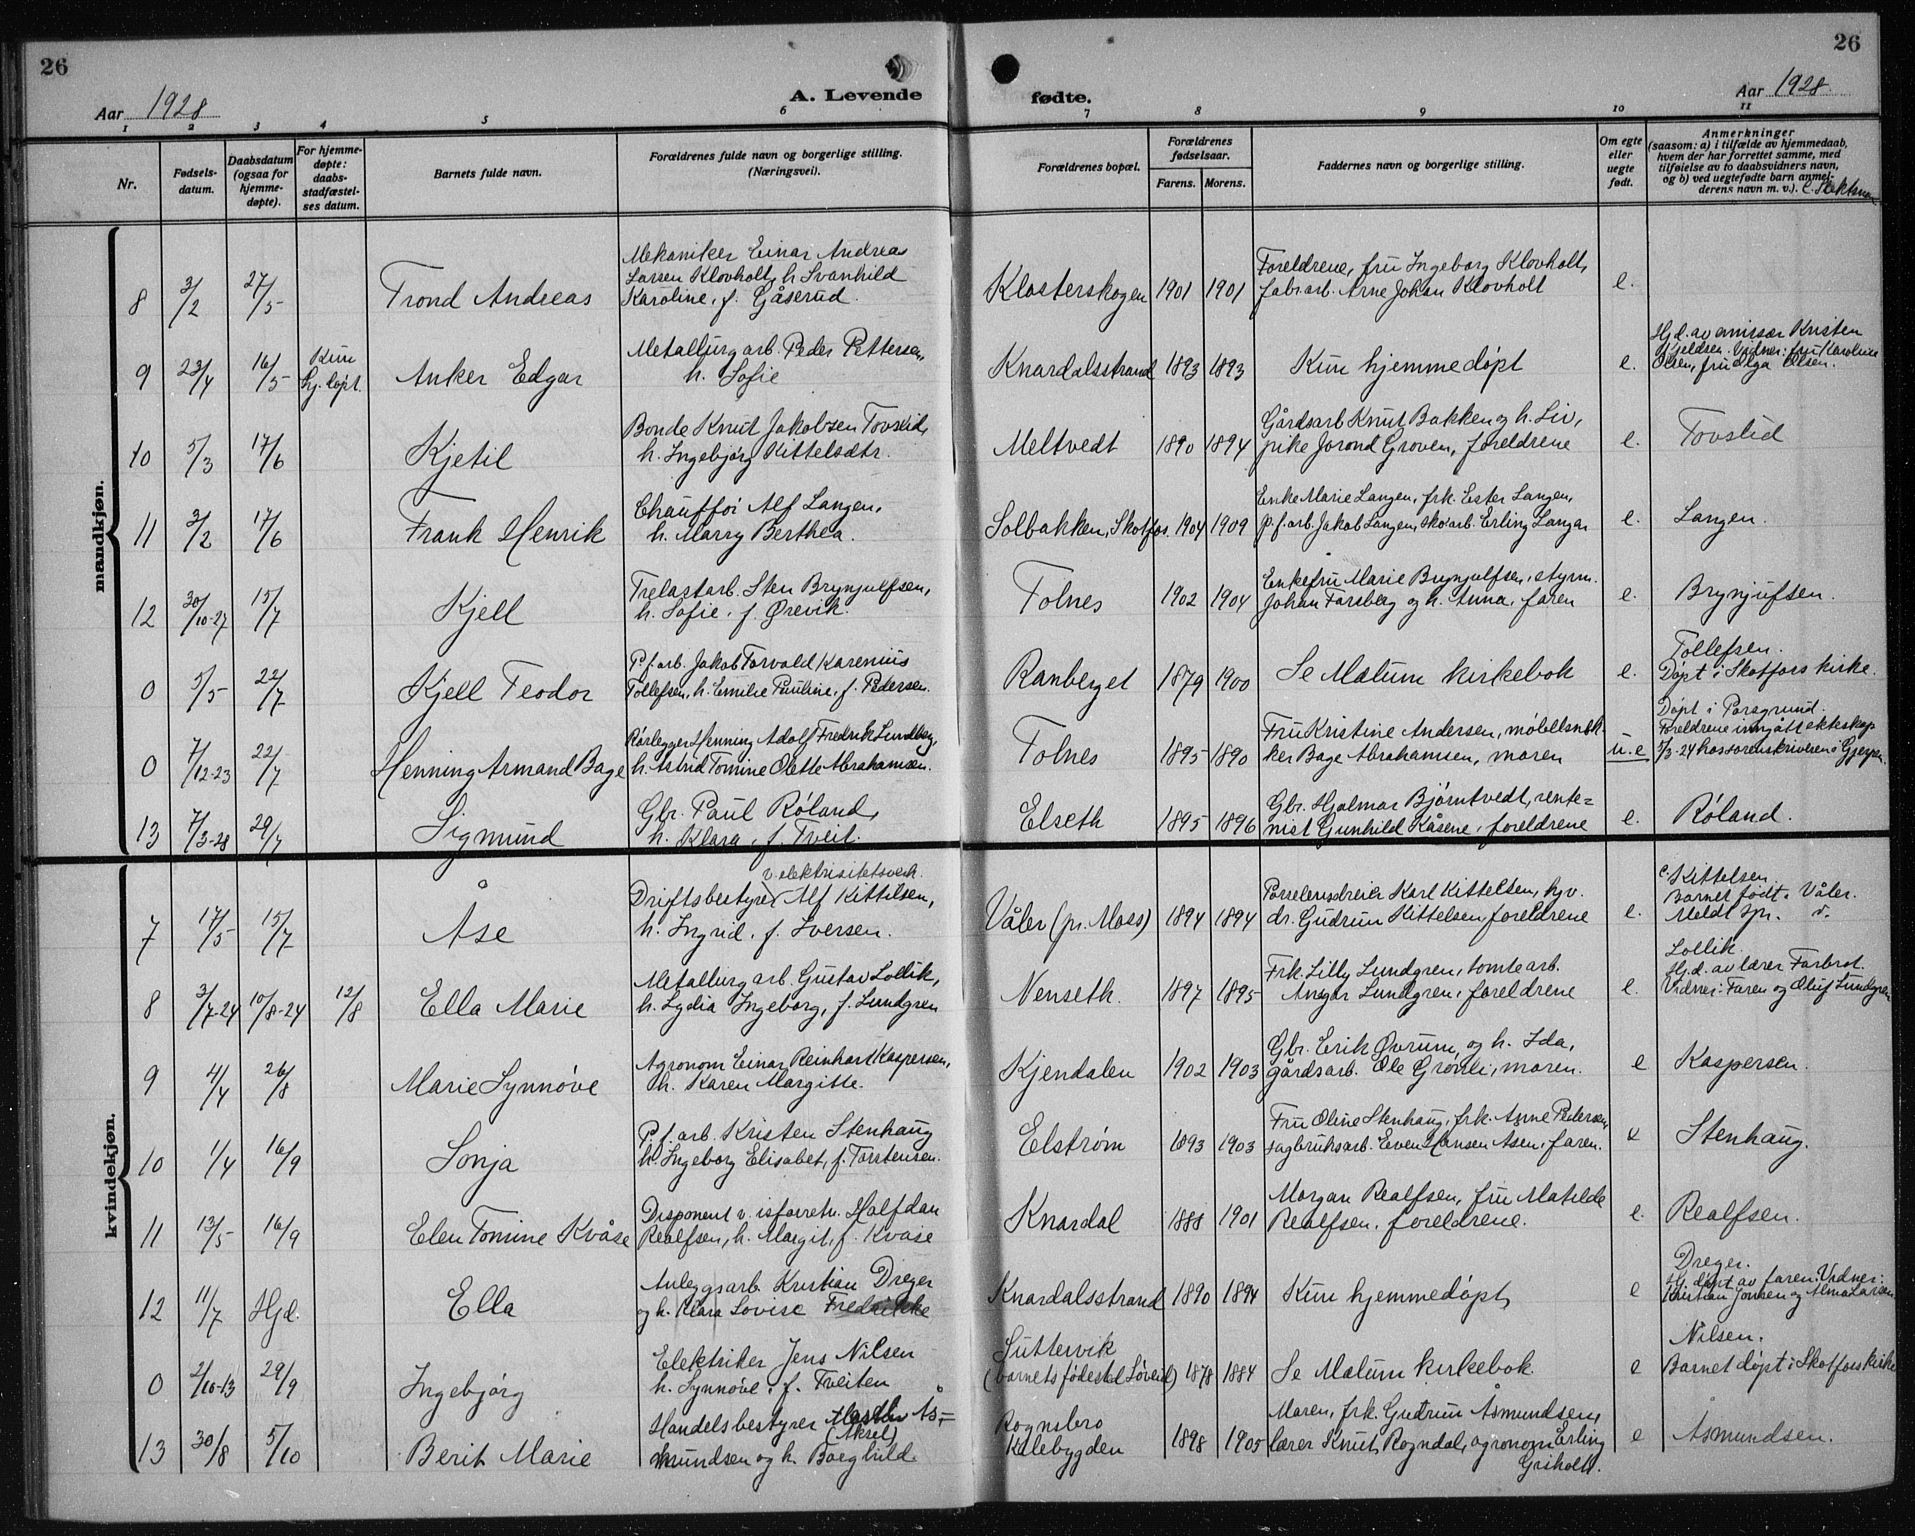 26
26
Aar 1928
A. Levende
fødte.
Aar 1928.
1 2 3 4 5 6 7 8 9 10 11
Nr.
Fødsels-
datum.
Daabsdatum
(ogsaa for
hjemme-
døpte).
For hjemme-
døpte:
daabs-
stadfæstel-
ses datum.
Barnets fulde navn.
Forældrenes fulde navn og borgerlige stilling.
(Næringsvei).
Forældrenes bopæl.
Forældrenes
fødselsaar.
Farens. Morens.
Faddernes navn og borgerlige stilling.
Om egte
eller
uegte
født.
Anmerkninger
(saasom: a) i tilfælde av hjemmedaab,
hvem der har forrettet samme, med
tilføielse av to daabsvidners navn,
og b) ved uegtefødte barn anmel-
derens navn m. v.). c. Slektsnavn
mandkjøn.
8 3/2 27/5 Trond Andreas
Mekaniker Einar Andreas
Larsen Klovholt, h. Svanhild
Karoline, f. Gåserud.
Klosterskogen 1901 1901
Foreldrene, fru Ingeborg Klovholt,
fabr.arb. Arne Johan Klovholt
e.
9 23/4 16/5 Kun
hj.døpt.
Anker Edgar
Metallurg arb. Peder Pettersen,
h. Sofie
Knardalsstrand 1893 1893 Kun hjemmedøpt e.
Hj.d. av emissær Kristen
Kjeldsen. Vidner: fru Karoline
Olsen, fru Olga Olsen.
10 5/3 17/6 Kjetil
Bonde Knut Jakobsen Tovslid,
h. Ingebjørg Kittelsdtr.
Meltvedt 1890 1894
Gårdsarb Knut Bakken og h. Liv,
pike Jorond Groven, foreldrene
e. Tovslid
11 3/2 17/6 Frank Henrik
Chauffør Alf Langen,
h. Marry Berthea.
Solbakken, Skotfos. 1904 1909
Enke Marie Langen, frk. Ester Langen,
p.f.arb. Jakob Langen, skoarb. Erling Langen
e. Langen.
12 30/10-27 15/7 Kjell
Trelastarb. Sten Brynjulfsen,
h. Sofie, f. Ørevik.
Tolnes 1902 1904
Enkefru Marie Brynjulfsen, styrm.
Johan Farsberg og h. Anna, faren
e. Brynjulfsen.
0 5/5 22/7 Kjell Teodor
P.f.arb. Jakob Torvald Karenius
Tollefsen, h. Emilie Pauline, f. Pedersen.
Ranberget 1879 1900 Se Mælum kirkebok e.
Tollefsen.
Døpt i Skotfoss kirke.
0 7/12-23 22/7 Henning Armand Bage
Rørlegger Henning Adolf Fredrik Lundberg,
h. Astrid Tomine Olette Abrahamsen.
Tolnes 1895 1890
Fru Kristine Andersen, møbelsnek-
ker Bage Abrahamsen, moren
u.e
Døpt i Porsgrund.
Foreldrene inngått ekteskap
/3-24 hos sorenskriveren i Gjerpen.
13 7/3-28 29/7 Sigmund
Gbr. Paul Røland,
h. Klara, f. Tveit.
Elseth 1895 1896
Gbr. Hjalmar Bjørntvedt, rente=
nist Gunhild Kåsene, foreldrene
e. Røland.
kvindekjøn.
7 17/5 15/7 Åse
v. elektrisitetsverk.
Driftsbestyrer Alf Kittilsen,
h. Ingrid, f. Iversen.
Våler (pr. Moss) 1894 1894
Porselensdreier Karl Kittelsen, hjv.
dr. Gudrun Kittelsen, foreldrene
e.
c. Kittelsen.
Barnet født i Våler.
Meldt spr. d.
8 3/7-24 10/8-24 12/8 Ella Marie
Metallurg arb. Gustav Lollik,
h. Lydia Ingeborg, f. Lundgren
Nenseth. 1897 1895
Frk. Lilly Lundgren, tomtearb.
Ansgar Lundgren, foreldrene
e.
Lollik.
Hj.d. av lærer Farbrot.
Vidner: Faren og Oluf Lundgren
9 4/4 26/8 Marie Synnøve
Agronom Einar Reinhart Kaspersen,
h. Karen Margitte.
Kjendalen 1902 1903
Gbr. Erik Øvrum og h. Ida,
gårdsarb. Ole Grønli, moren.
e Kaspersen.
10 1/4 16/9 Sonja
P.f.arb. Kristen Stenhaug
h. Ingeborg Elisabet, f. Torstensen.
Elstrøm 1893 1903
Fru Oline Stenhaug, frk. Anne Pedersen
sagbruksarb. Even Hansen Åsen, faren.
e Stenhaug.
11 13/5 16/9 Elen Tomine Kvåse
Disponent v. isforretn. Halfdan
Realfsen, h. Margit, f. Kvåse
Knardal 1888 1901
Morgan Realfsen, fru Matilde
Realfsen, foreldrene.
e. Realfsen.
12 11/7 Hjd. Ella
Anleggsarb. Kristian Dreger
og h. Klara Lovise Fredrikke
Knardalsstrand 1890 1894 Kun hjemmedøpt, e
Dreger.
Hj.døpt av faren. Vidner:
Kristian Jonsen og Alma Larsen
0 2/10-13 29/9 Ingebjørg
Elektriker Jens Nilsen
h. Synnøve, f. Tveiten
Suttervik
(barnets fødested Løveid) 1878 1884 Se Mælum kirkebok. e
Nilsen.
Barnet døpt i Skotfoss kirke
13 30/8 5/10 Berit Marie
Handelsbestyrer Ås=
(Aksel)
mundsen og h. Borghild.
Rognsbro
Kilebygden 1898 1905
Moren, frk. Gudrun Åsmundsen,
lærer Knut Rogndal, agronom Erling
Griholt.
e Åsmundsen.